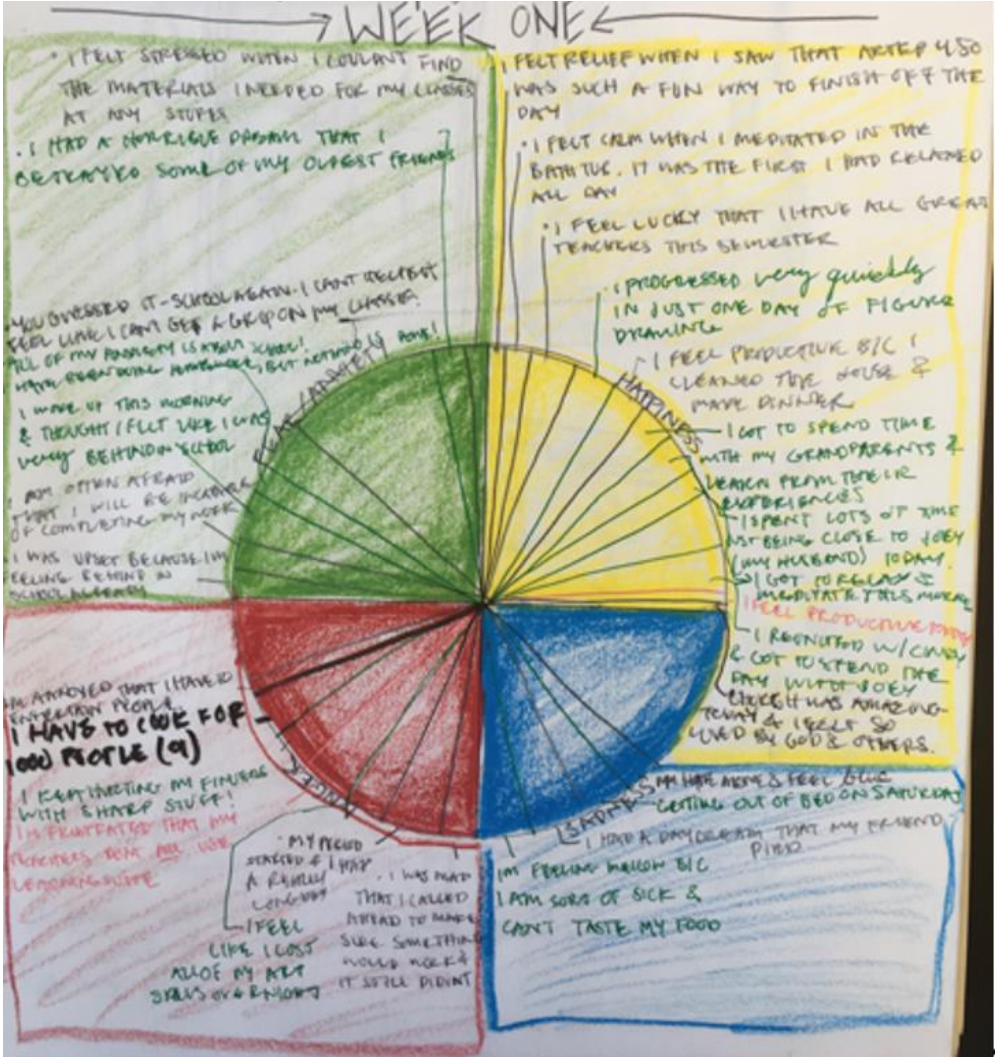 WEEK ONE
• I FELT STRESSED WHEN I COULDN'T FIND
THE MATERIALS I NEEDED FOR MY CLASSES
AT ANY STORES
• I HAD A HORRIBLE DREAM THAT I
BETRAYED SOME OF MY OLDEST FRIENDS
• YOU GUESSED IT - SCHOOL AGAIN. I CAN'T HELP BUT
FEEL LIKE I CAN'T GET A GRIP ON MY CLASSES.
ALL OF MY ANXIETY IS ABOUT SCHOOL!
HAVE BEEN DOING HOMEWORK, BUT NOTHING IS DONE!
I WOKE UP THIS MORNING
& THOUGHT I FELT LIKE I WAS
very BEHIND IN SCHOOL
I AM OFTEN AFRAID
THAT I WILL BE INCAPABLE
OF COMPLETING MY WORK
• I WAS UPSET BECAUSE I'M
FEELING BEHIND IN
SCHOOL ALREADY
FEAR/ANXIETY
I FELT RELIEF WHEN I SAW THAT ARTED 450
WAS SUCH A FUN WAY TO FINISH OFF THE
DAY
• I FELT CALM WHEN I MEDITATED IN THE
BATH TUB. IT WAS THE FIRST I HAD RELAXED
ALL DAY
• I FEEL LUCKY THAT I HAVE ALL GREAT
TEACHERS THIS SEMESTER
• I PROGRESSED very quickly
IN JUST ONE DAY OF FIGURE
DRAWING
I FEEL PRODUCTIVE B/C I
CLEANED THE HOUSE &
MADE DINNER
HAPPINESS
I GOT TO SPEND TIME
WITH MY GRANDPARENTS &
LEARN FROM THEIR
EXPERIENCES
I SPENT LOTS OF TIME
JUST BEING CLOSE TO JOEY
(MY HUSBAND) TODAY.
I GOT TO RELAX &
MEDITATE THIS MORNING
I FEEL PRODUCTIVE TODAY
I REUNITED W/ CINDY
& GOT TO SPEND THE
DAY WITH JOEY
CHURCH WAS AMAZING
TODAY & I FELT SO
LOVED BY GOD & OTHERS.
I'M ANNOYED THAT I HAVE TO
ENTERTAIN PEOPLE
I HAVE TO COOK FOR
1000 PEOPLE (9)
I KEEP HURTING MY FINGERS
WITH SHARP STUFF!
I'M FRUSTRATED THAT MY
TEACHERS DON'T ALL USE
LEARNING SUITE
ANGER
• MY PERIOD
STARTED & I HAD
A REALLY
LONG DAY
I FEEL
LIKE I LOST
ALL OF MY ART
SKILLS OVERNIGHT
• I WAS MAD
THAT I CALLED
AHEAD TO MAKE
SURE SOMETHING
WOULD WORK &
IT STILL DIDN'T
SADNESS
I'M HOME ALONE & FEEL BLUE
GETTING OUT OF BED ON SATURDAY
I HAD A DAYDREAM THAT MY FRIEND
DIED
I'M FEELING MELLOW B/C
I AM SORT OF SICK &
CAN'T TASTE MY FOOD